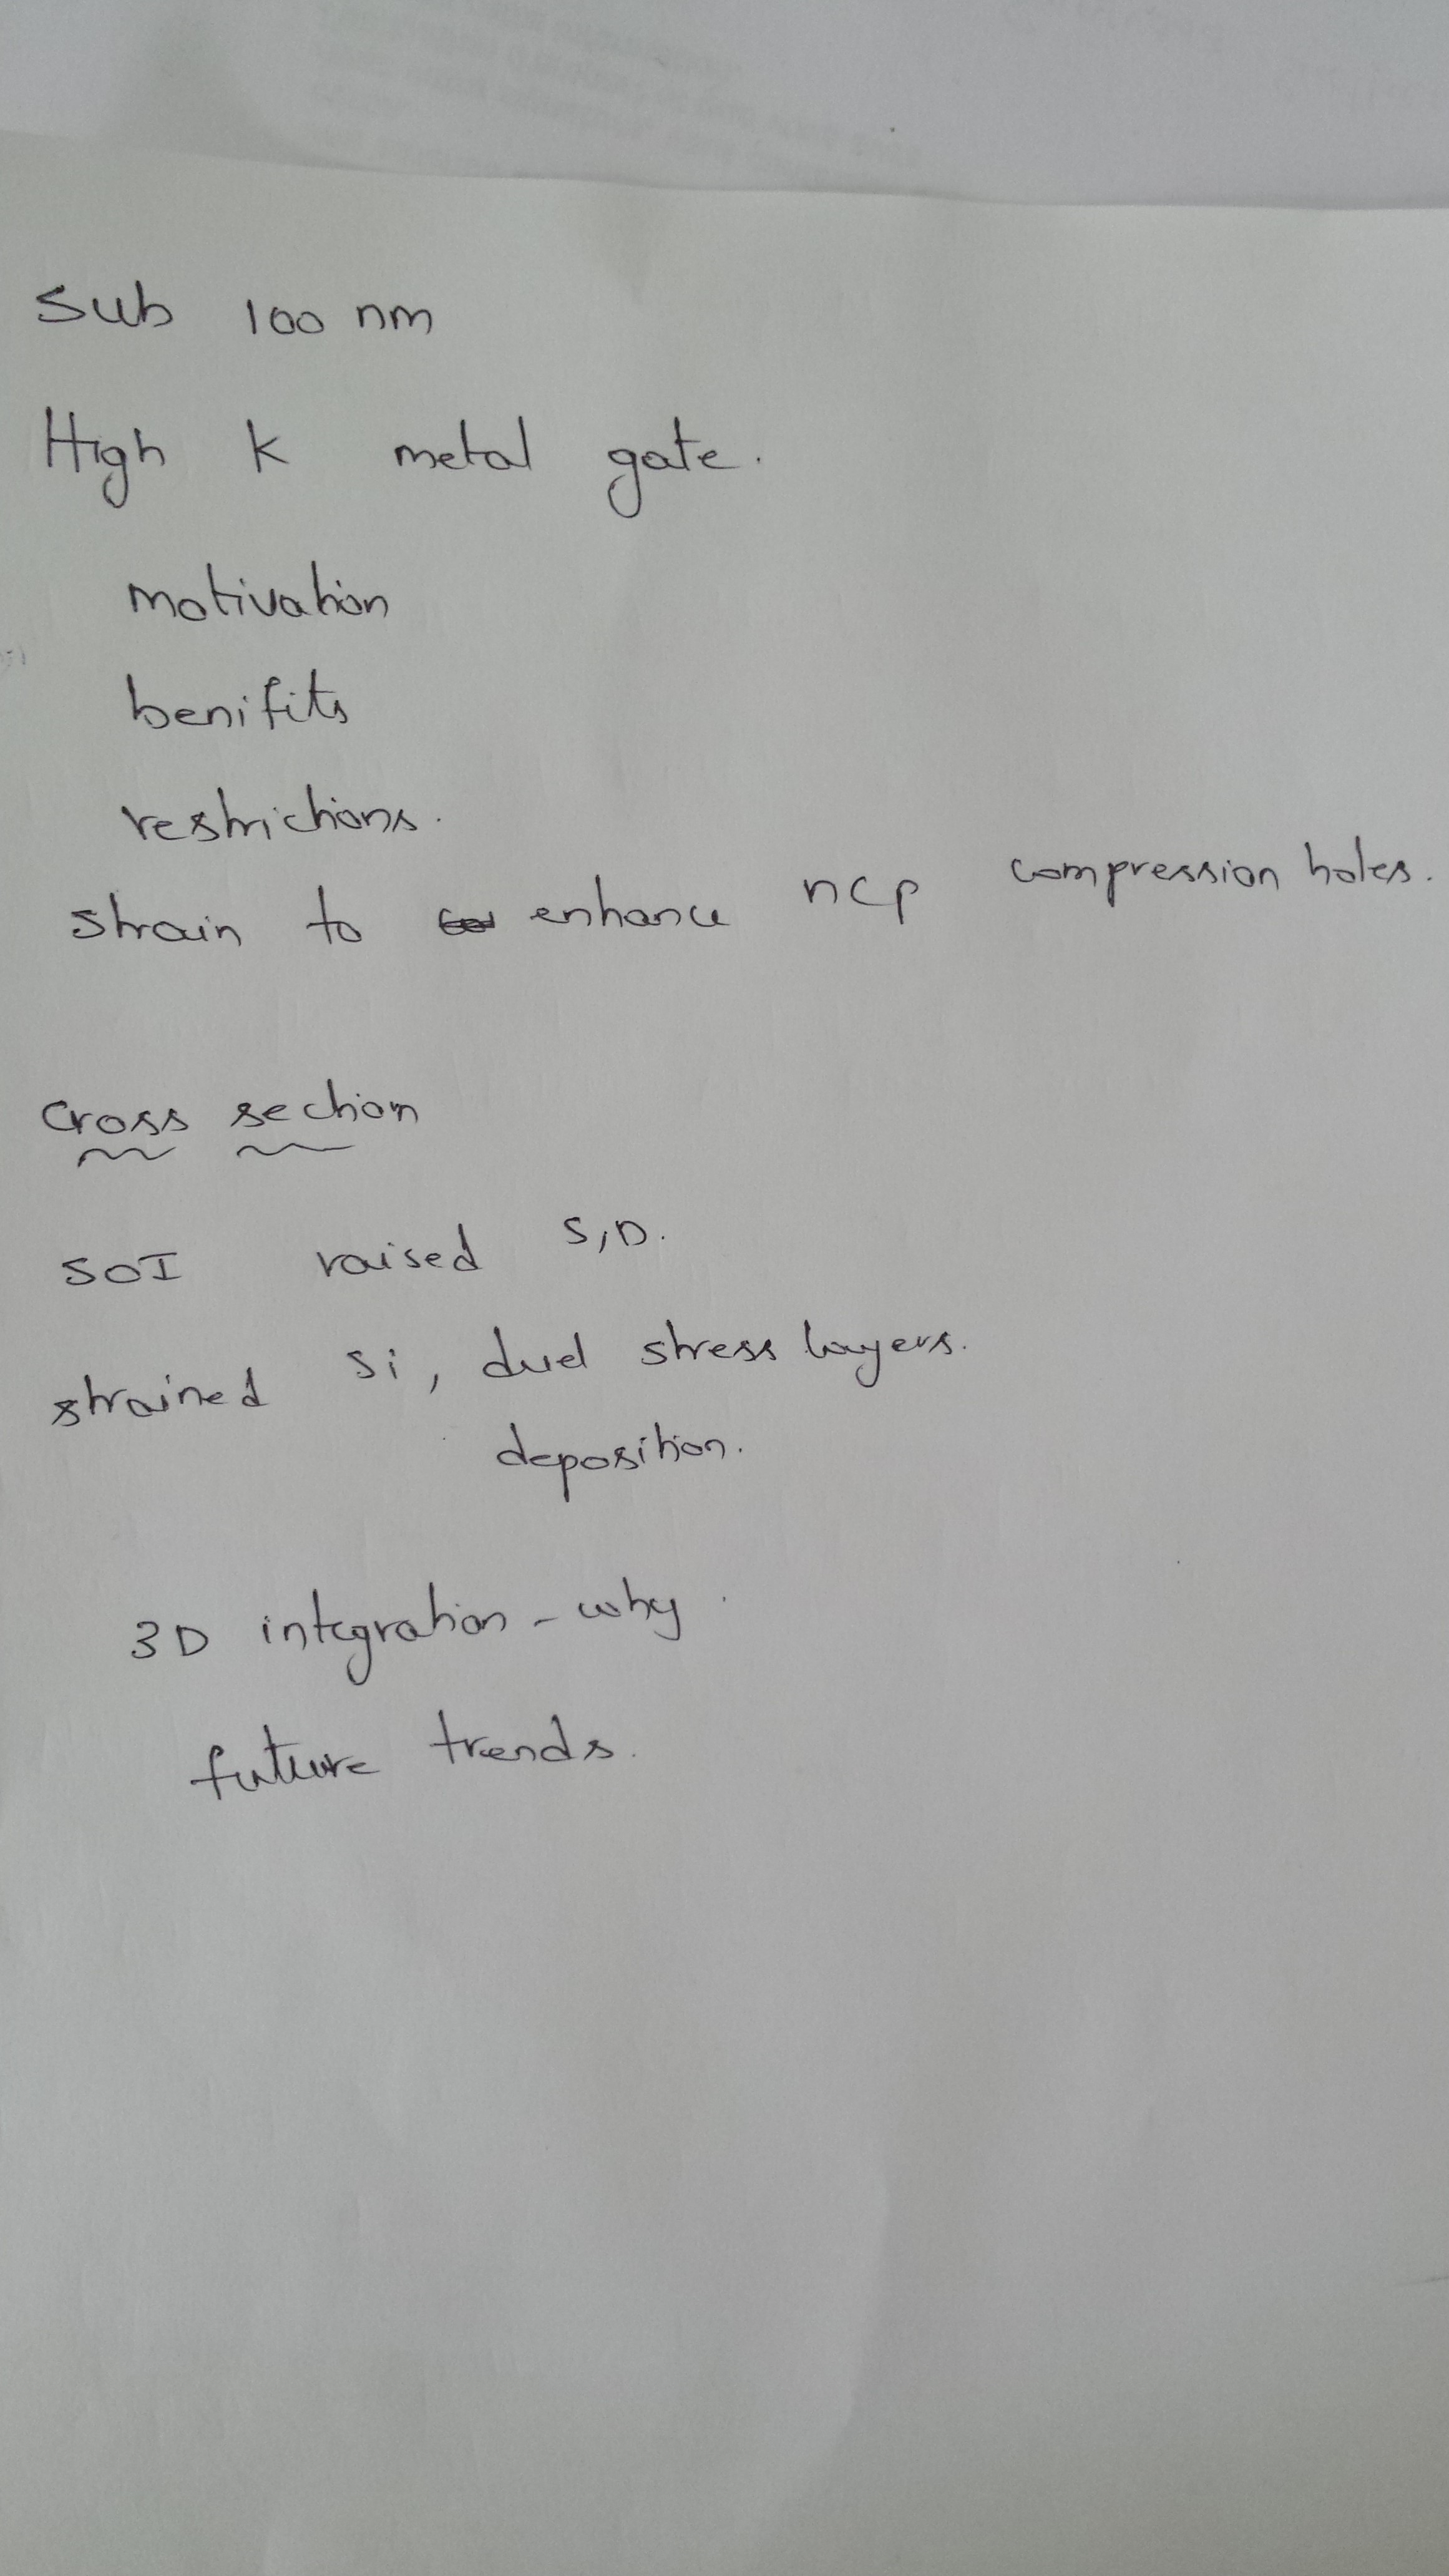 Sub 100 nm
High K metal gate.
motivation
benifits
restrictions.
strain to enhance ncp compression holes.
Cross section
SOI raised S,D.
strained Si, duel stress layers.
deposition.
3D integration - why.
future trends.